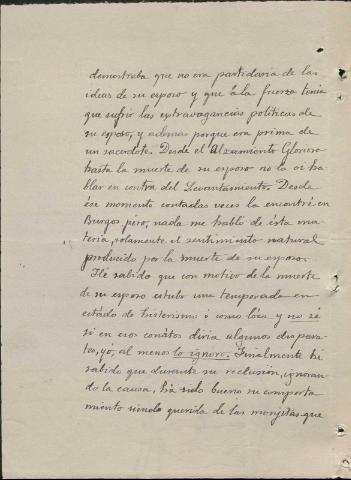 demostraba que no era partidaria de las
ideas de su esposo y que a la fuerza tenia
que sufrir las extravagancias politicas de
su esposo, y además porque era prima de
un sacerdote. Desde el Alzamiento Glorioso
hasta la muerte de su esposo no la oi ha
blar en contra del Levantamiento. Desde
ése momento contadas veces la encontré en
Burgos pero, nada me habló de ésta ma
teria, solamente el sentimiento natural
producido por la muerte de su esposo.
Hé sabido que con motivo de la muerte
de su esposo estubo una temporada en
estado de histerismo i como lóca y no sé
si en esos conatos diria algunos dispara
tes, yó, al menos lo ignoro. Finalmente he
sabido que durante su reclusión, ignoran
do la causa, há sido bueno su comporta
miento siendo querida de las monjitas que